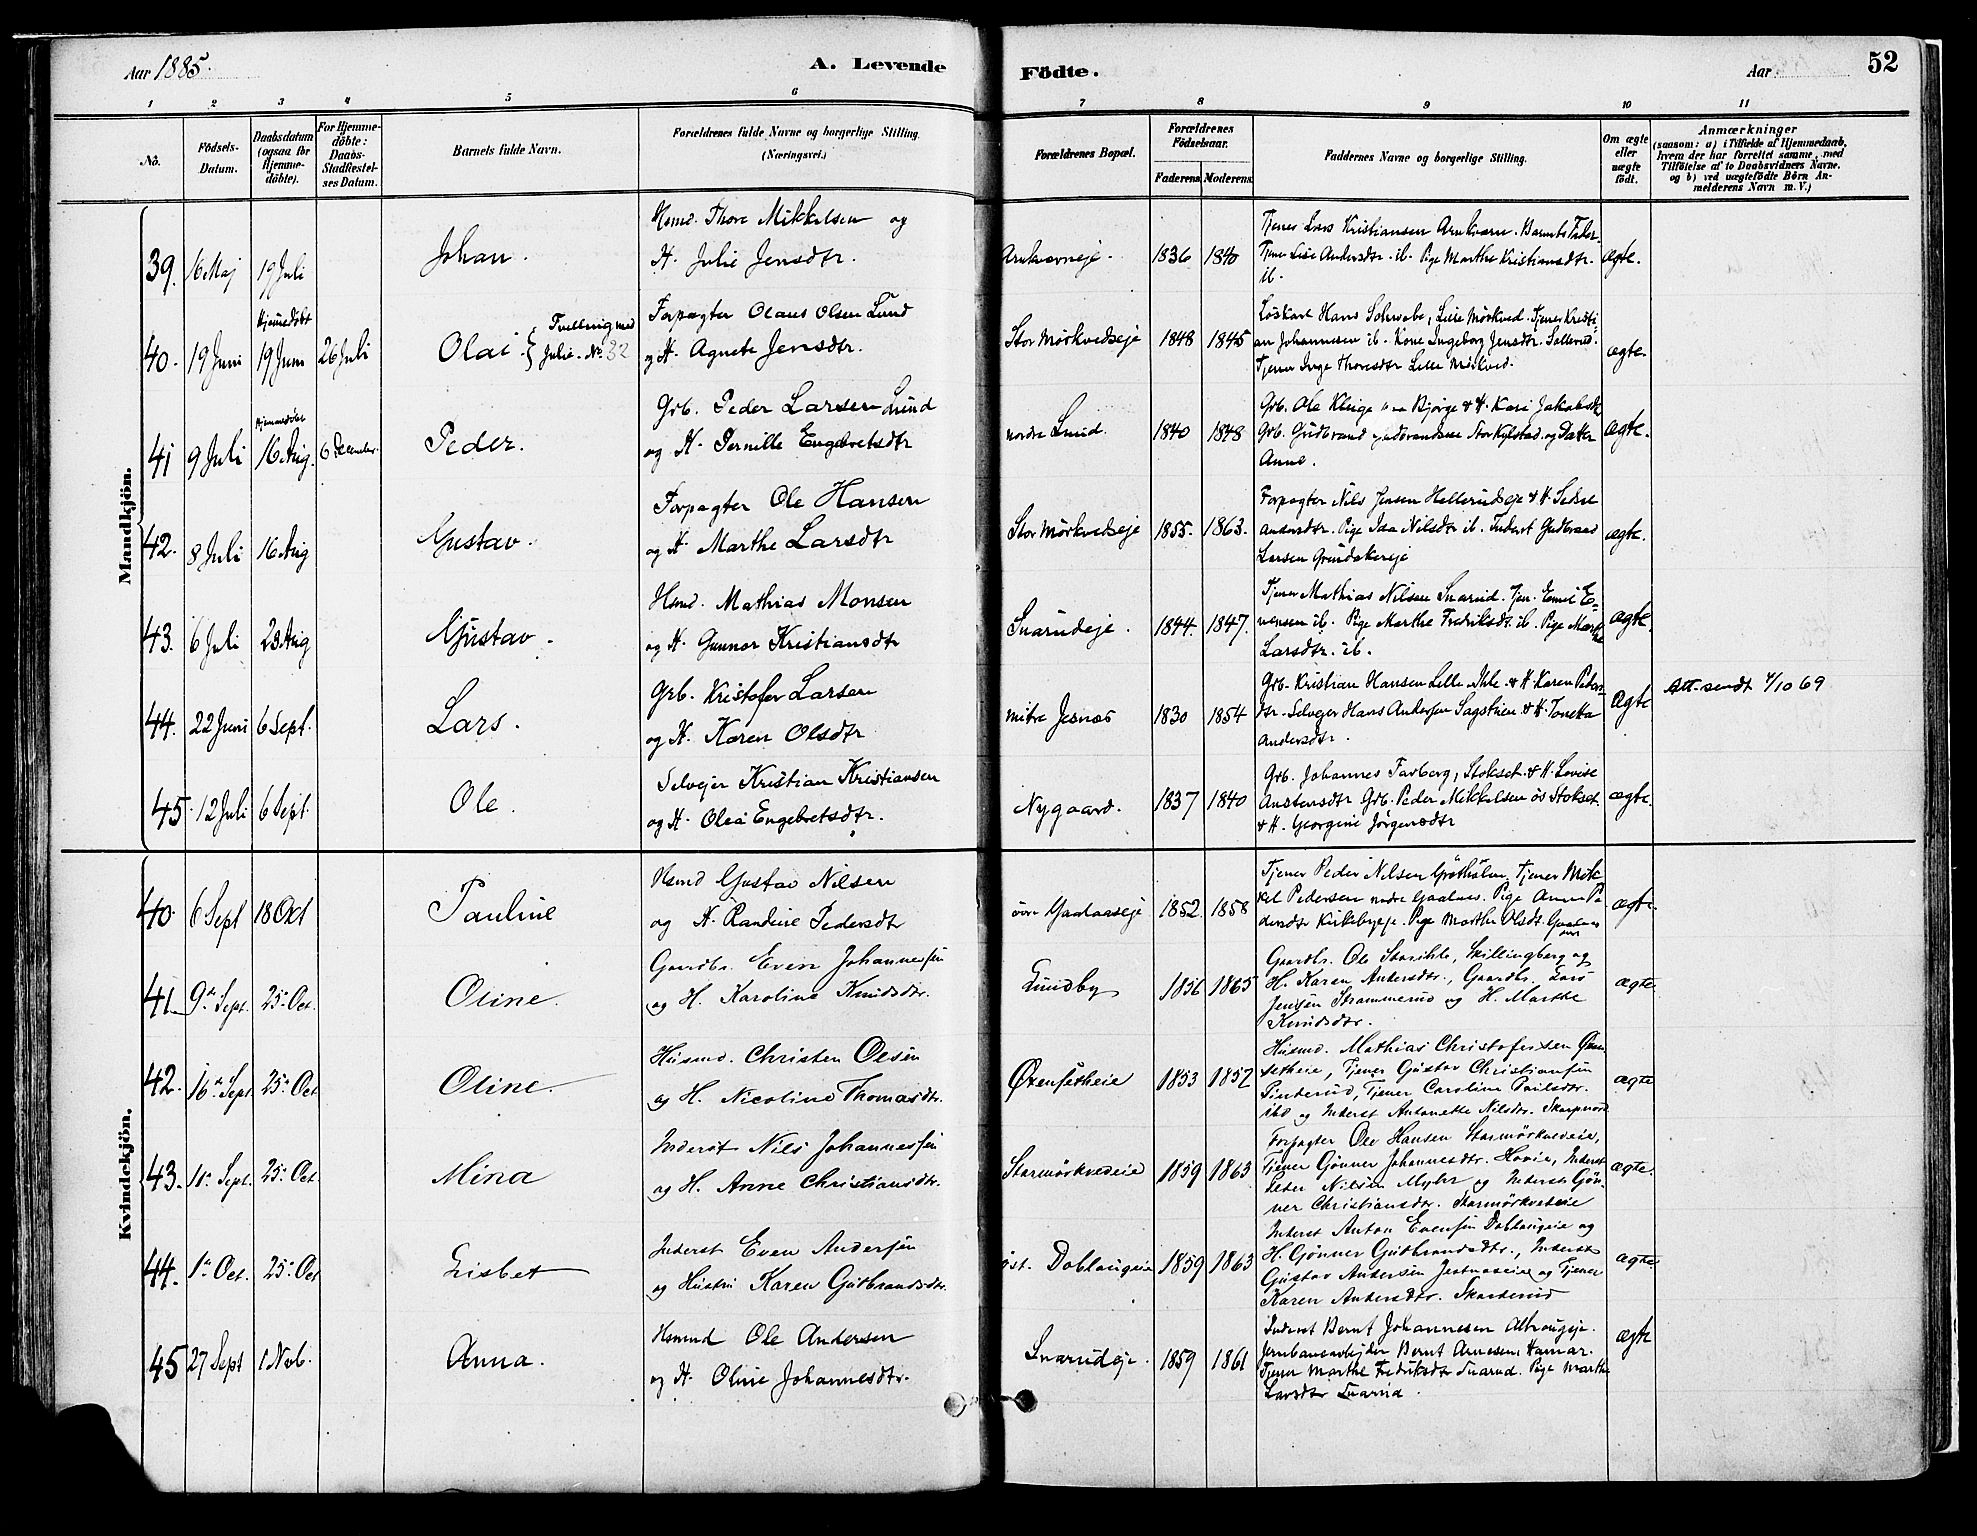 Aar 1885.
A. Levende Födte.
Aar
52
1 2 3 4 5 6 7 8 9 10 11
No.
Födsels-Datum.
Daabsdatum (ogsaa for Hjemme-döbte).
For Hjemme-döbte: Daabs-Stadfæstel-ses Datum.
Barnets fulde Navn.
Forældrenes fulde Navne og borgerlige Stilling. (Næringsvei.)
Forældrenes Bopæl.
Forældrenes Födselsaar.
Faderens. Moderens.
Faddernes Navne og borgerlige Stilling.
Om ægte eller uægte födt.
Anmærkninger
(saasom: a) i Tilfælde af Hjemmedaab, hvem der har forrettet samme, med Tilföielse af to Daabsvidners Navne, og b) ved uægtefödte Börn An-melderens Navn m. V.)
Mandkjön.
39. 16 Maj 19 Juli
Johan.
Hsmd. Thore Mikkelsen og
H. Julie Jensdtr.
Arnkværneje. 1836 1840
Tjener Lars Kristiansen Arnkværn. Barnets Fader.
Tjener Lise Andersdtr. ib. Pige Marthe Kristiansdtr.
ib.
ægte.
40. 19 Juni Hjemmedöbt 19 Juni 26 Juli
Olai. { Tvilling med Julie. No 32
Forpagter Olaus Olsen Lund
og H. Agnete Jensdtr.
Stor Mörkvedseje 1848 1845
Löskarl Hans Schwabe, Lille Mörkved. Tjener Kristi-
an Johannesen ib. Kone Ingeborg Jensdtr. Sollerud.
Tjener Inge Thoresdtr Lille Mörkved.
ægte.
41 9 Juli Hjemmedöbt 16 Aug. 6 December.
Peder.
Grb. Peder Larsen Lund
og H. Pernille Engebretsdtr
nordre Lund. 1840 1848
Grb. Ole Bjørge & H. Kari Jakobsdtr
Grb. Gudbrand Gudbrandsen Stor Kylstad og Datter
Anne.
ægte.
42. 8 Juli 16 Aug
Gustav.
Forpagter Ole Hansen
og H Marthe Larsdtr
Stor Mörkvedseje 1855. 1863.
Forpagter Nils Jensen Hellerudseje & H.
Andersdtr. Pige Ida Nilsdtr ib. Inderst Gudbrand
Larsen Grundsetereje
ægte.
43. 6 Juli 23 Aug
Gustav.
Hsmd. Mathias Monsen
og H. Gunnor Kristiansdtr
Snarudeje. 1844. 1847.
Tjener Mathias Nilsen Snarud. Tjen. Emil E-
vensen ib. Pige Marthe Fredriksdtr. ib. Pige Marthe
Larsdtr. ib.
ægte.
44. 22 Juni 6 Sept.
Lars.
Grb. Kristofer Larsen
og H. Karen Olsdtr
mitre Jesnes 1830 1854
Grb. Kristian Hansen Lille Ihle & H. Karen Peders-
dtr. Selvejer Hans Andersen Sagstuen & H. Tonetta
Andersdtr.
ægte
Att. sendt 4/10 69
45 12 Juli 6 Sept.
Ole.
Selvejer Kristian Kristiansen
og H. Olea Engebretsdtr.
Nygaard. 1837 1840
Grb. Johannes Farberg, Stokset & H. Lovise
Austensdtr Grb. Peder Mikkelsen ös Stokset
& H. Georgine Jörgensdtr
ægte.
Kvindekjön.
40. 6 Sept 18 Oct
Pauline
Hsmd Gustav Nilsen
og H. Randine Pedersdtr
övre Gaalaaseje 1852 1858
Tjener Peder Nilsen Tjener Mik-
kel Pedersen nedre Gaalaas. Pige Anne Pe-
dersdtr Kirkebyeje. Pige Marthe Olsdt. Gaalaas
ægte.
41. 9de Sept. 25. Oct.
Oline.
Gaardbr. Even Johannessen
og H. Karoline Knudsdtr.
Lundby 1856 1865
Gaardbr. Ole Storihle, Skillingberg og
H. Karen Andersdtr., Gaardbr. Lars
Jensen Strammerud og H. Marthe
Knudsdtr.
ægte
42. 16de Sept. 25. Oct
Oline.
Husmd. Christen Olsen
og H. Nicoline Thomasdtr.
Øxensetheie 1853 1857
Husmd. Mathias Christofersen Øxen-
setheie, Tjener Gustav Christiansen
Finderud, Tjener Caroline Paulsdtr.
ibd og Inderst Antonette Nilsdtr. Skarpnord
ægte
43. 11. Sept. 25. Oct.
Mina
Inderst Nils Johannessen
og H. Anne Christiansdtr.
Stormörkvedeie 1859 1863
Forpagter Ole Hansen Stormörkvedeie,
Tjener Gönner Johannesdtr. Hovie, Inderst
Peder Nilsen Myhr og Inderst Gön-
ner Christiansdtr. Stormörkvedeie
ægte.
44. 1. Oct. 25. Oct
Lisbet
Inderst Even Andersen
og Hustru Karen Gudbrandsdtr.
öst. Doblougeie 1859 1863
Inderst Anton Evensen Doblougeie og
H. Gönner Gudbrandsdtr., Inderst
Gustav Andersen Jesnaseie og Tjener
Karen Andersdtr. Skarderud
ægte
45 27 Sept 1 Nvb.
Anna.
Hsmnd Ole Andersen
og H. Oline Johannesdtr.
Snarudeje. 1859 1861
Inderst Bernt Johannesen Alhougeje.
Jernbanearbejder Bernt Arnesen, Hamar.
Tjener Marthe Fredriksdtr Snarud. Pige Marthe
Larsdtr Snarud.
ægte